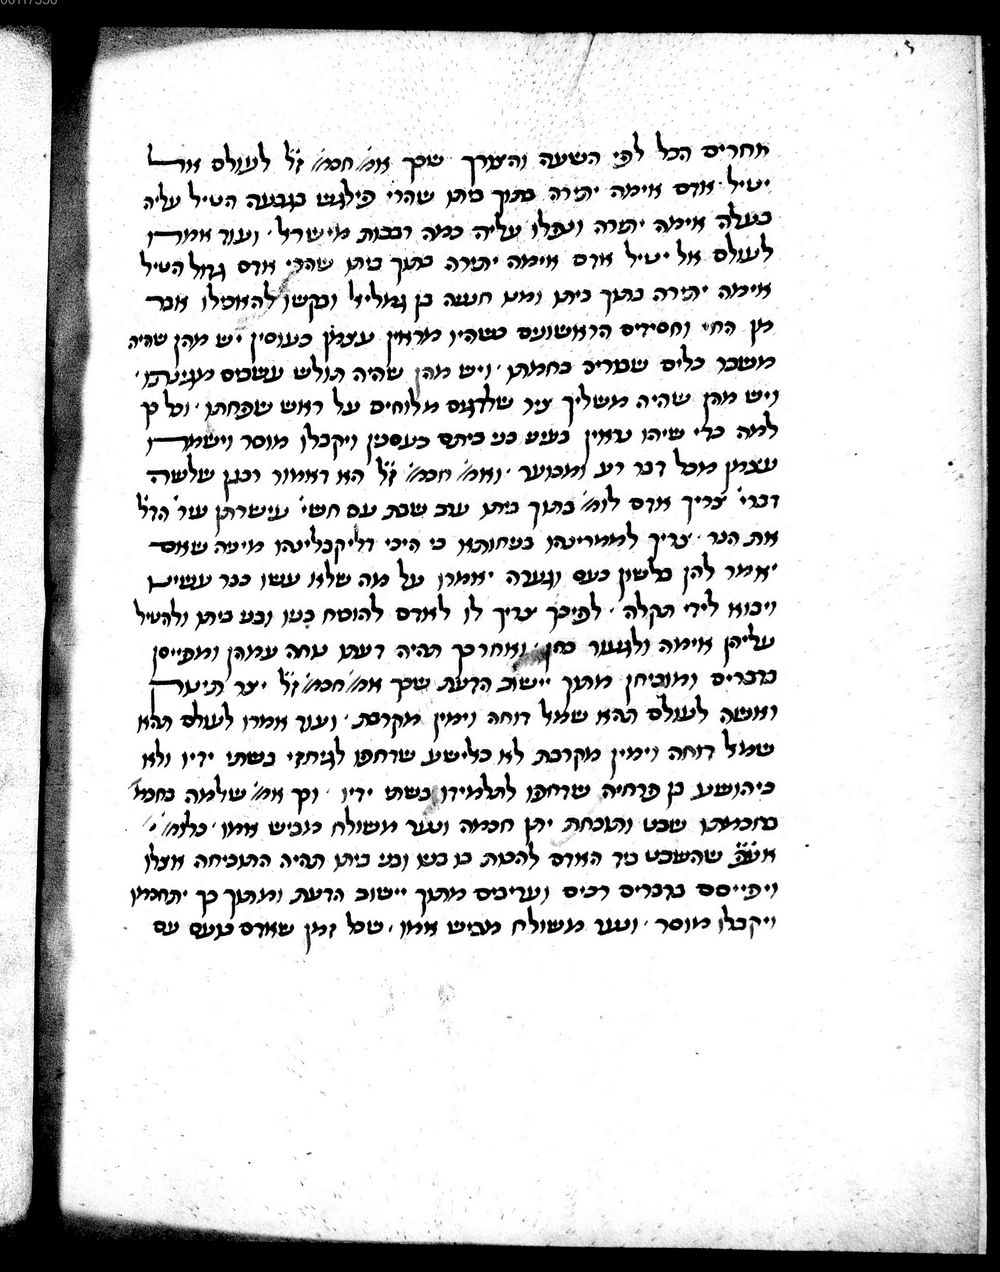 אחרים הכל לפי השעה והצורך שכך אמ' חכמ' ז"ל לעולם אל
יטיל אדם אימה יתירה בתוך ביתו שהרי פילגש בגבעה הטיל עליה
בעלה אימה יתירה ונפלו עליה כמה רבבות מישראל · ועוד אמרו
לעולם אל יטיל אדם אימה יתירה בתוך ביתו שהרי אדם גדול הטיל
אימה יתירה בתוך ביתו ומנו חנינה בן גמליאל ובקשו להאכילו אבר
מן החי וחסידים הראשונים כשהיו מראין עצמן כעוסין יש מהן שהיה
משבר כלים שבורים בחמתו · ויש מהן שהיה תולש עשבים מגינתו ·
ויש מהן שהיה משליך ציר שלדגים מלוחים על ראש שפחתו · וכל כך
למה כדי שיהו נראין בעיני בני ביתם כעוסין ויקבלו מוסר וישמרו
עצמן מכל דבר רע ומכוער · ואמ' חכמ' ז"ל הא דאמור רבנן שלשה
דברי' צריך אדם לומ' בתוך ביתו ערב שבת עם חשי' עישרתן ער' הדל'
את הנר · צריך לממרינהו בניחותא כי היכי דליקבלינהו מיניה שאם
יאמר להן בלשון כעס וגערה יאמרו על מה שלא עשו כבר עשינו
ויבוא לידי תקלה · לפיכך צריך לו לאדם להוכיח בניו ובני ביתו ולהטיל
עליהן אימה ולגעור בהן · ואחר כך תהיה דעתו נוחה עמהן ומפייסן
בדברים ומוכיחן מתוך יישוב הדעת שכך אמ' חכמ' ז"ל יצר תינוק
ואשה לעולם תהא שמאל דוחה וימין מקרבת · ועוד אמרו לעולם תהא
שמאל דוחה וימין מקרבת לא כאלישע שדחפו לגיחזי בשתי ידיו ולא
כיהושע בן פרחיה שדחפו לתלמידו בשתי ידיו · וכך אמ' שלמה בחכמ'
בחכמתו שבט ותוכחת יתן חכמה ונער משולח מביש אמו · כלומ' '
שהשבט ביד האדם להכות בו בניו ובני ביתו תהיה התוכיחה אצלו
ויפייסם בדברים רכים ועריבים מתוך יישוב הדעת ומתוך כך יתחכמו
ויקבלו מוסר · ונער משולח מביש אמו · שכל זמן שאדם כועס עם